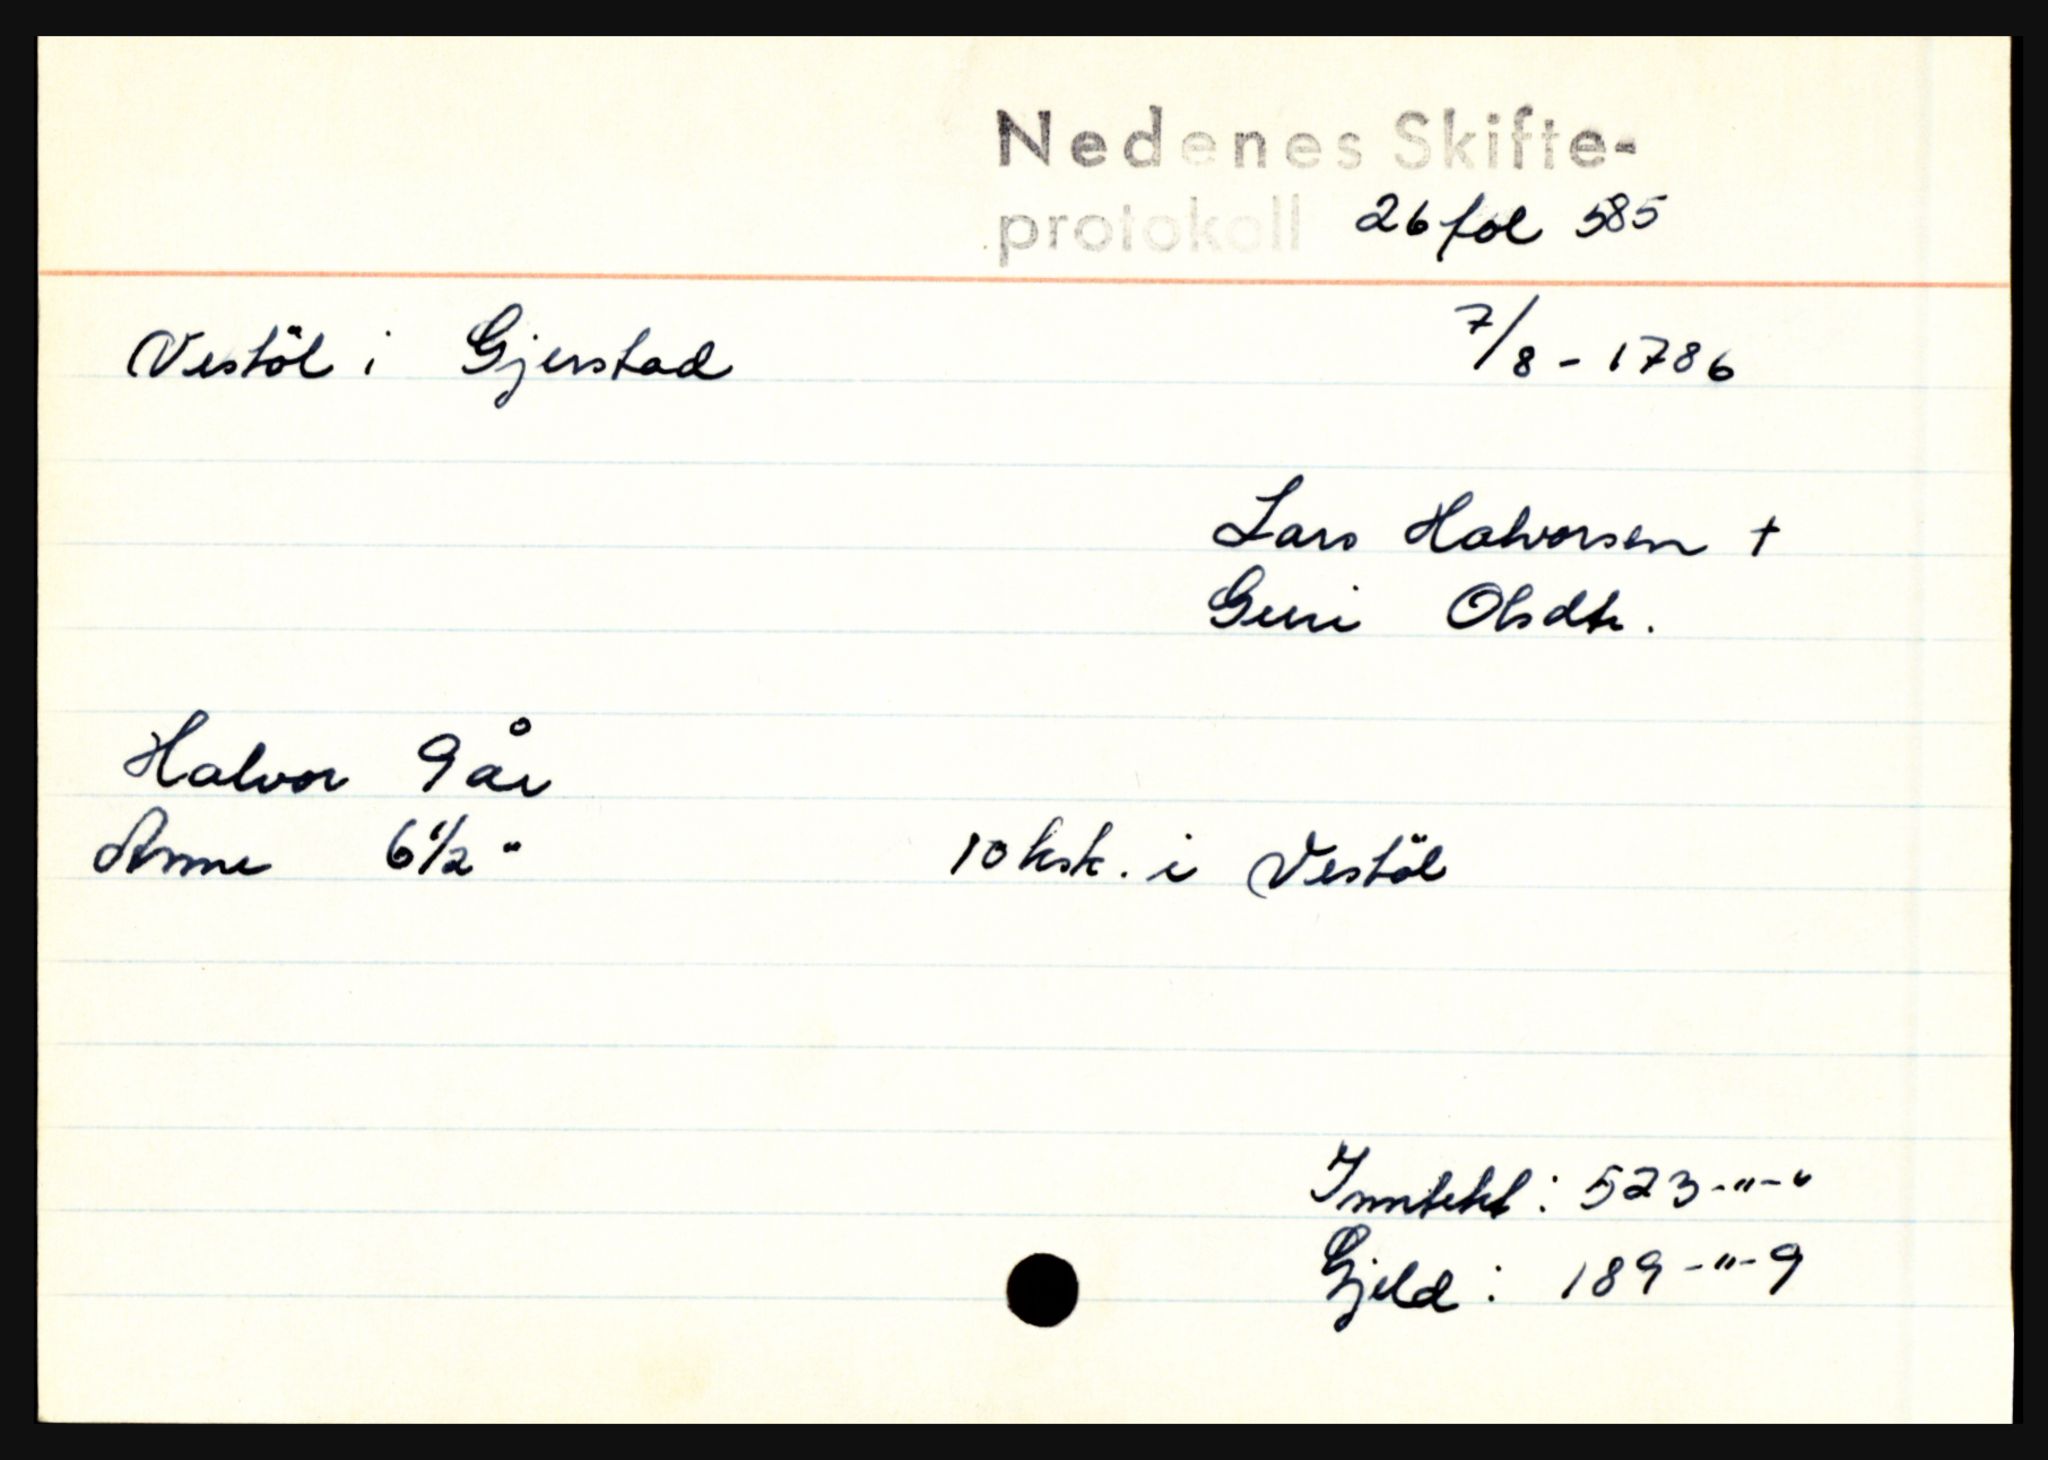 Nedenes Skifte-
protokoll 26 fol 585
Vestöl i Gjerstad 7/8 - 1786
Lars Halvorsen +
Guri Olsdtr.
Halvor 9 år
Anne 6 1/2 " 10 ksk. i Vestöl
Inntekt: 523-"-"
Gjeld: 189-"-9